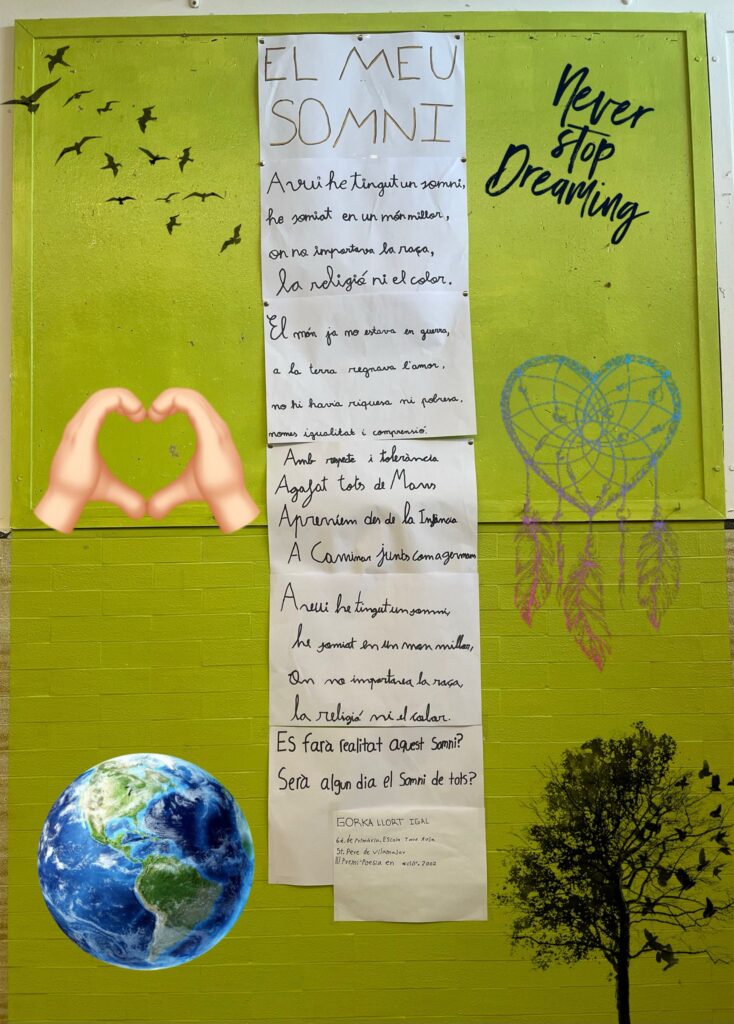 EL MEU
SOMNI
Avui he tingut un somni,
he somiat en un món millor,
on no importava la raça,
la religió ni el color.
El món ja no estava en guerra,
a la terra regnava l'amor,
no hi havia riquesa ni pobresa,
nomes igualtat i comprensió.
Amb respecte i tolerància
Agafat tots de Mans
Apreniem des de la Infància
A Caminar junts com a germans
Avui he tingut un somni,
he somiat en un mon millor,
On no importava la raça,
la religió ni el color.
Es fara realitat aquest Somni?
Serà algun dia el Somni de tots?
GORKA LLORT IGAL
6è. de Primària, Escola Torre Roja
St. Pere de Vilamajor
Premi-Poesia en
Never
stop
Dreaming